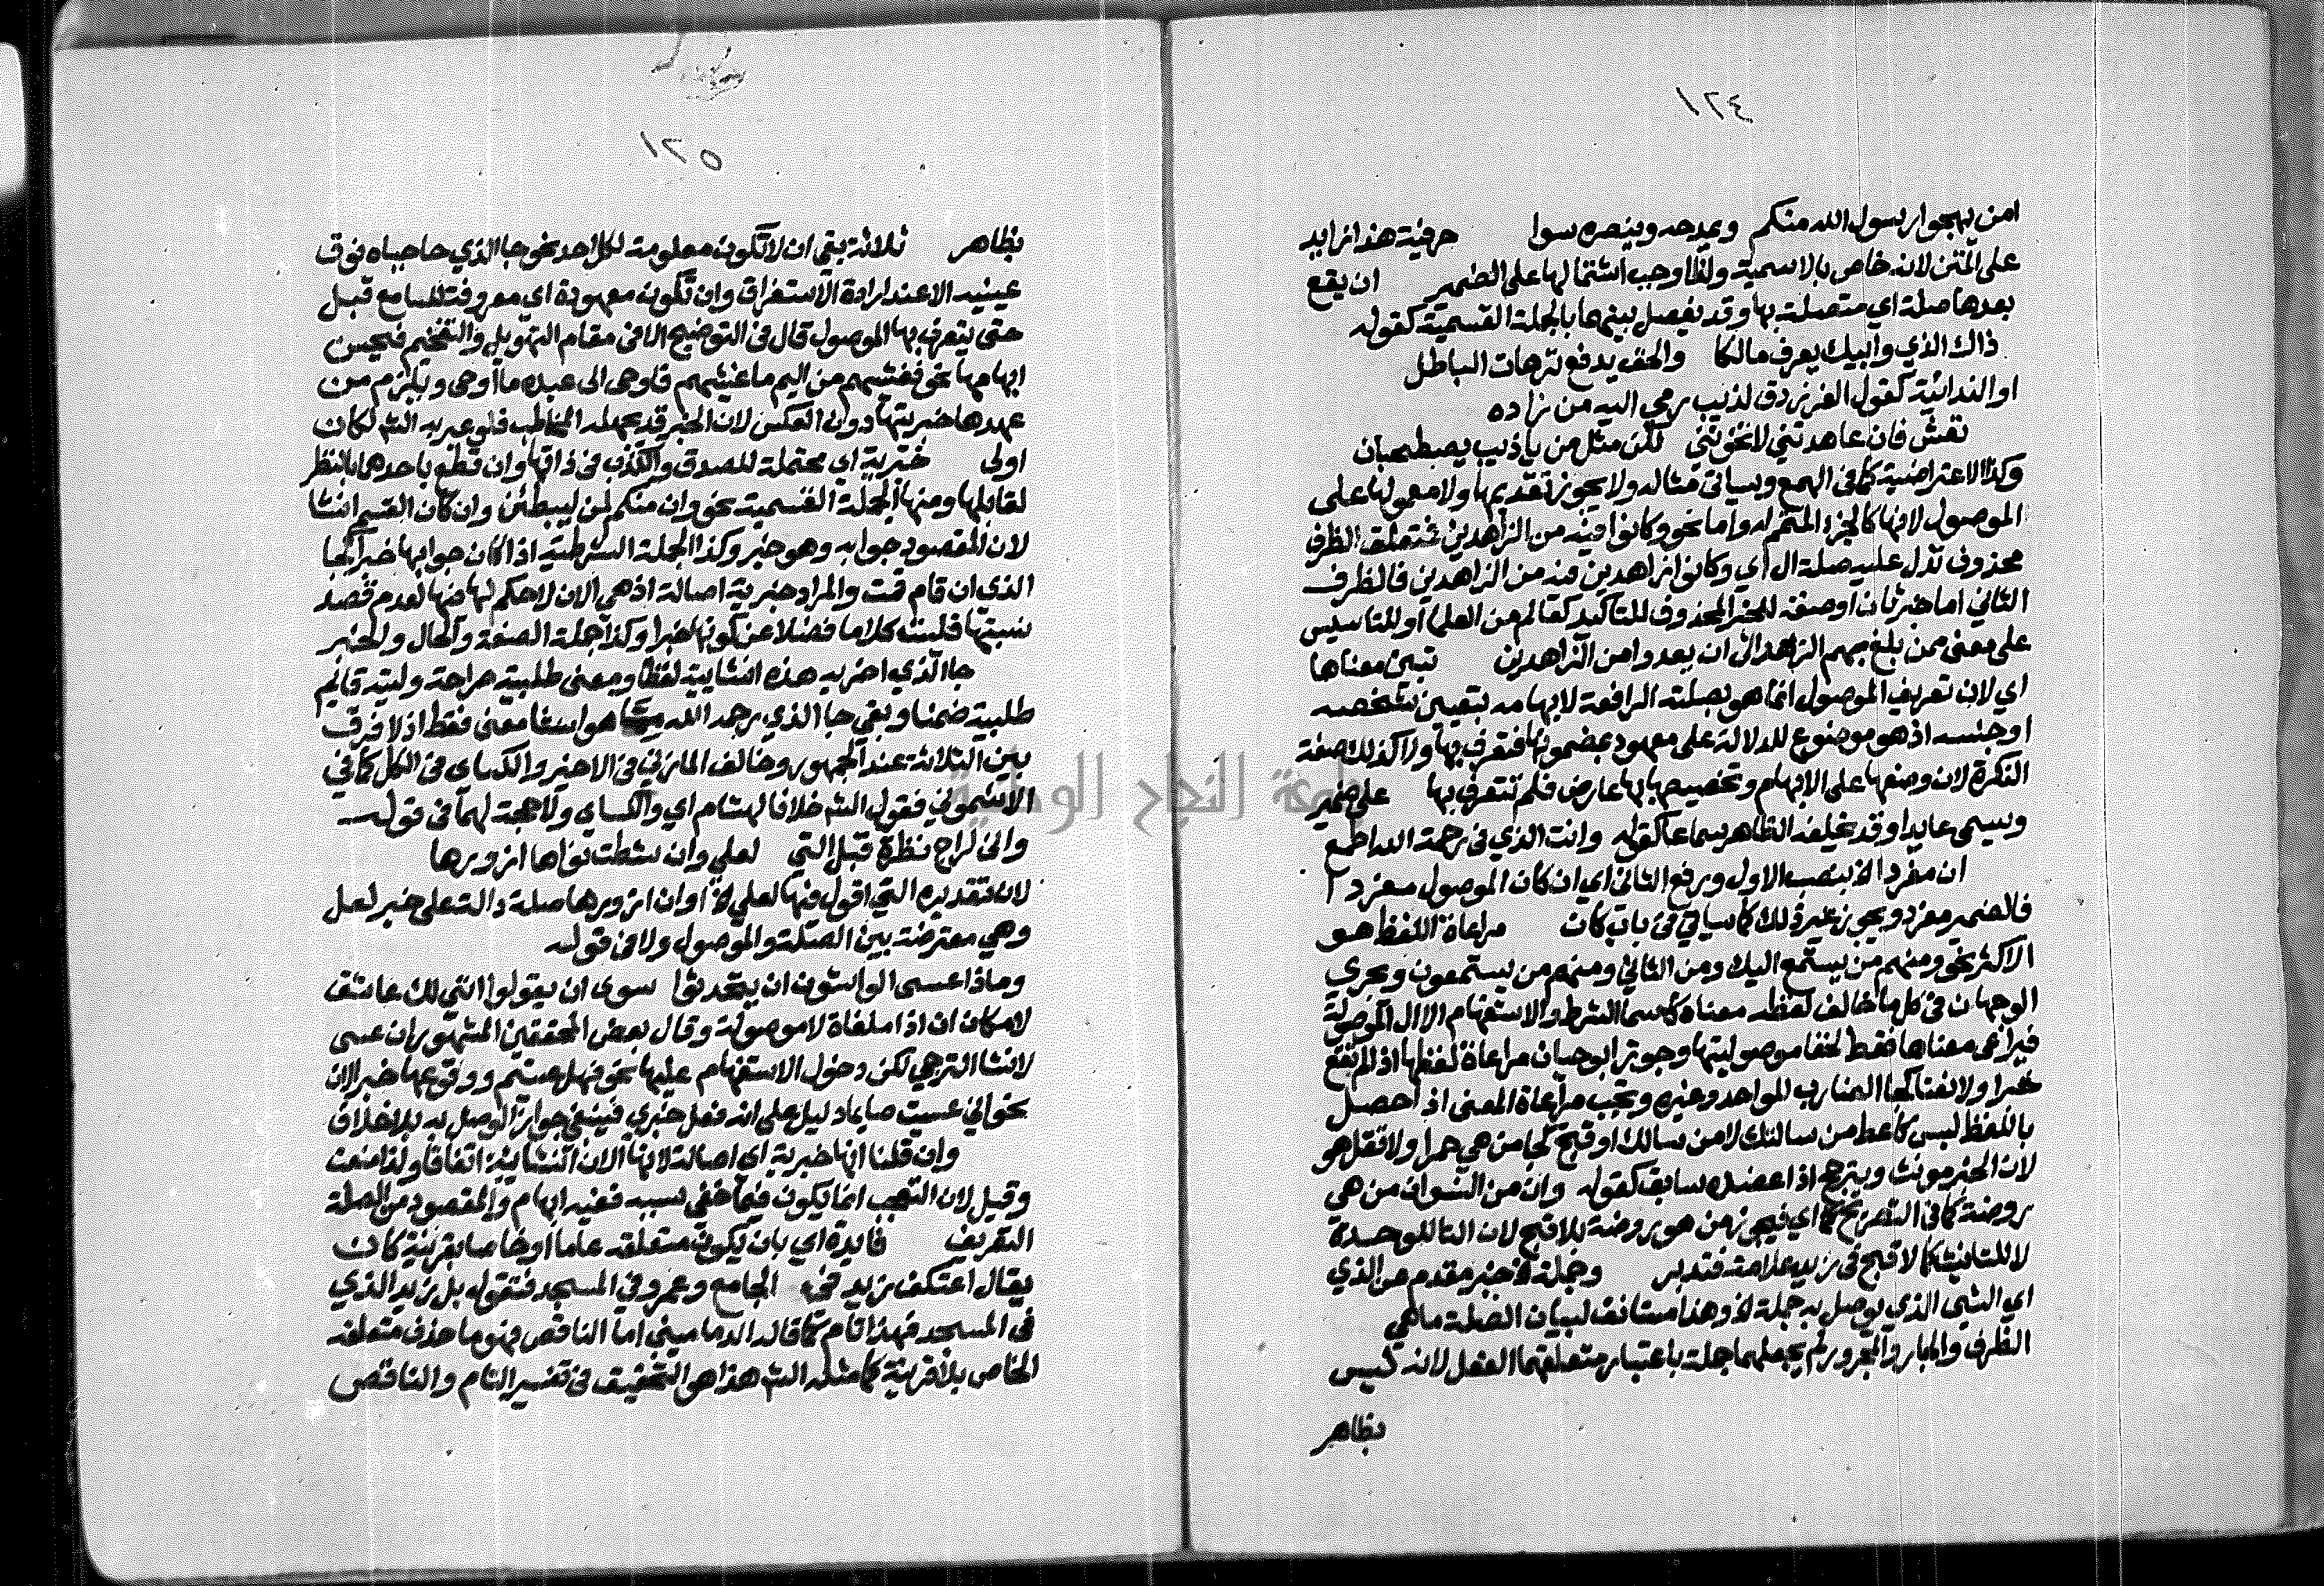 ١٢٤
امن يهجوا رسول الله منكم ويمدحه وينصره سوا حرفية هذا زايد
على المتن لانه خاص بالاسمية ولذا وجب اشتمالها على الضمير ان يقع
بعدها صلة اي متصلة بها وقد يفصل بينهما بالجملة القسمية كقوله
ذاك الذي وابيك يعرف مالكا والحق يدفع ترهات الباطل
او الندائية كقول الفرزدق لذئب رمي اليه من زاده
تعش فان عاهدتني لا تخونني نكن مثل من ياذيب يصطحبان
وكذا الاعتراضية كما في الهمع وسياتي مثاله ولا يجوز تقديمها ولا معمولها على
الموصول لانها كالجزء المتمم له واما نحو وكانوا فيه من الزاهدين فمتعلق الظرف
محذوف تدل عليه صلة ال اي وكانوا زاهدين فيه من الزاهدين فالظرف
الثاني اما خبر ثان او صفة للخبر المحذوف للتاكيد كعالم من العلما او للتاسيس
على معنى ممن بلغ بهم الزهد الى ان يعدوا من الزاهدين تبين معناها
اي لان تعريف الموصول انما هو بصلته الرافعة لابهامه بتعيين شخصه
او جنسه اذ هو موضوع للدلالة على معهود بمضمونها فتعرف بها ولا كذلك صفة
النكرة لان وضعها على الابهام وتخصيصها بها عارض فلم تتعرف بها على ضمير
ويسمى عايدا وقد يخلفه الظاهر سماعا كقوله وانت الذي في رحمة الله اطمع
ان مفردا الخ بنصب الاول ورفع الثاني اي ان كان الموصول مفردا
فالضمير مفرد ويجوز غير ذلك كما سياتي في باب كان مراعاة اللفظ هو
الاكثر نحو ومنهم من يستمع اليك ومن الثاني ومنهم من يستمعون ويجري
الوجهان في كل ما خالف لفظه معناه كاسما الشرط والاستفهام الا ال الموصولة
فيراعى معناها فقط لخفا موصوليتها وجوز ابو حيان مراعاة لفظها اذا لم تقع
خبرا ولا نعتا كجا الضارب للواحد وغيره ويجب مراعاة المعنى اذا حصل
باللفظ لبس كاعط من سالتك لا من سالك او قبح كجا من هي حمرا ولا تقل هو
لان الخبر مونث ويترجح اذا عضده سابق كقوله وان من النسوان من هي
روضة كما في التصريح اي فيجوز من هو روضة بلا قبح لان التا للوحدة
لا للتانيث كما لا قبح في زيد علامة فتدبر وجملة الخ خبر مقدم عن الذي
اي الشي الذي يوصل به جملة الخ وهذا مستانف لبيان الصلة ما هي
الظرف والجار والمجرور لم يجعلهما جملة باعتبار متعلقهما الفعل لانه ليس
بظاهر
١٢٥
بظاهر ثلاثة بقي ان لا تكون معلومة لكل احد نحو جا الذي حاجباه فوق
عينيه الا عند ارادة الاستغراق وان تكون معهودة اي معروفة للسامع قبل
حتى يتعرف بها الموصول قال في التوضيح الا في مقام التهويل والتفخيم فيحسن
ابهامها نحو فغشيهم من اليم ما غشيهم فاوحى الى عبده ما اوحى ويلزم من
عهدها خبريتها دون العكس لان الخبر قد يجهله المخاطب فلو عبر به الش لكان
اولى خبرية اي محتملة للصدق والكذب في ذاتها وان قطع باحدهما بالنظر
لقايلها ومنها الجملة القسمية نحو وان منكم لمن ليبطئن وان كان القسم انشا
لان المقصود جوابه وهو خبر وكذا الجملة الشرطية اذا كان جوابها خبرا كجا
الذي ان قام قمت والمراد خبرية اصالة اذ هي الان لا حكم لها ضمنا لعدم قصد
نسبتها فليست كلاما فضلا عن كونها خبرا وكذا جملة الصفة والحال والخبر
جا الذي اضربه هذه انشايية لفظا ومعنى طلبية صراحة وليته قايم
طلبية ضمنا وبقي جا الذي يرحمه الله مما هو انشا معنى فقط اذ لا فرق
بين الثلاثة عند الجمهور وخالف المازني في الاخير والكساى في الكل كما في
الاشموني فقول الش خلافا لهشام اي والكساي ولا حجة لهما في قوله
واني لراج نظرة قبل التي لعلي وان شطت نواها ازورها
لان تقديره التي اقول فيها لعلي الخ او ان ازورها صلة دالة على خبر لعل
وهي معترضة بين الصلة والموصول ولا في قوله
وماذا عسى الواشون ان يتحدثوا سوى ان يقولوا انني لك عاشق
لامكان ان ذا ملغاة لا موصولة وقال بعض المحققين المشهور ان عسى
لانشا الترجي لكن دخول الاستفهام عليها نحو فهل عسيتم ووقوعها خبر الان
نحو اني عسيت صايما دليل على انه فعل خبري فينبغي جواز الوصل به بلا خلاف
وان قلنا انها خبرية اي اصالة لانها الان انشايية اتفاقا ولذا منعت
وقيل لان التعجب انما يكون فيما خفي سببه ففيه ابهام والمقصود من الصلة
التعريف فايدة اي بان يكون متعلقه عاما او خاصا بقرينة كان
يقال اعتكف زيد في الجامع وعمرو في المسجد فتقول بل زيد الذي
في المسجد فهذا تام كما قاله الدماميني اما الناقص فهو ما حذف متعلقه
الخاص بلا قرينة كما مثله الش هذا هو التحقيق في تفسير التام والناقص
جامعة النجاح الوطنية